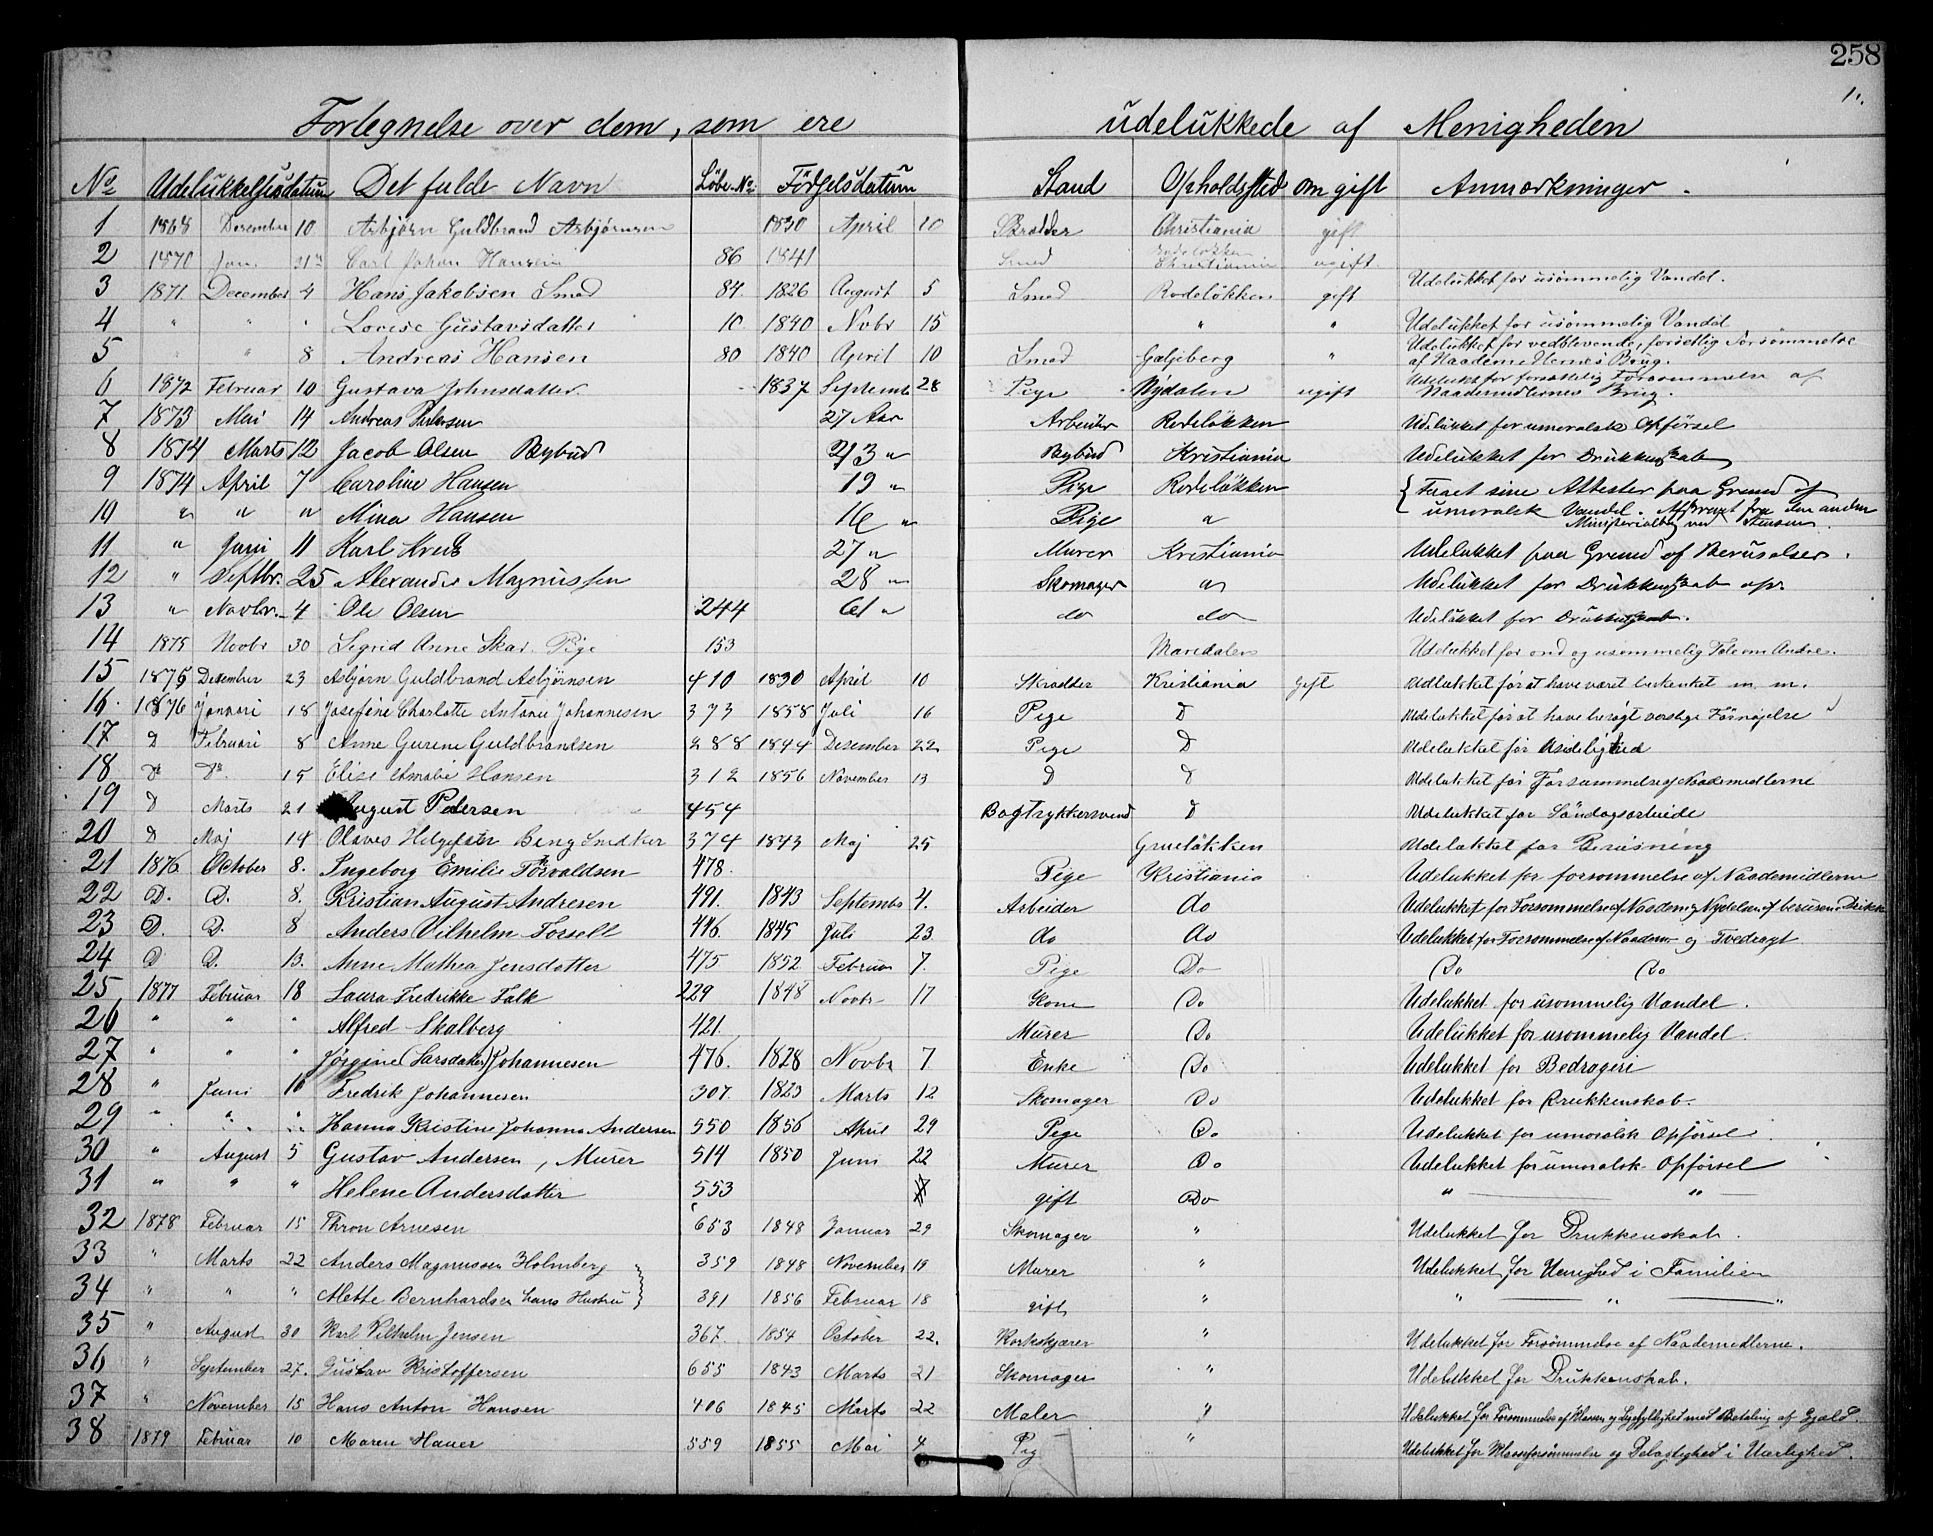 258
1.
Fortegnelse over dem, som ere udelukkede af Menigheden
No Udelukkelsesdatum Det fulde Navn Løbe-No Fødselsdatum Stand Opholdssted om gift Anmærkninger.
1 1868 December 10 Asbjørn Guldbrand Asbjørnsen 1830 April 10 Skrædder Christiania gift
2 1870 Jan. 21 Carl Johan Hansen 86 1841 Smed Rodeløkken Christiania ugift
3 1871 December 4 Hans Jakobsen Smed 84. 1826 August 5 Smed Rodeløkken gift Udelukket for usømmelig Vandel.
4 " " " Lovise Gustavsdatter 10. 1840 Novbr 15 " " Udelukket for usømmelig Vandel
5 " " 8 Andreas Hansen 80 1840 April 10 Smed Galgeberg " Udelukket for vedblevende, forsetlig Forsømmelse
af Naademidlernes Brug.
6 1872 Februar 10 Gustava Johnsdatter. 1837 Septemb 28 Pige Nydalen ugift Udelukt for forsætlig Forsømmelse af
Naademidlernes Brug.
7 1873 Mai 14 Andreas Pedersen 27 Aar Arbeider Rodeløkken Udelukket for umoralsk Opførsel
8 1874 Marts 12 Jacob Olsen Bybud 23 " Bybud Kristiania Udelukket for Drukkenskab
9 1874 April 7 Caroline Hansen 19 " Pige Rodeløkken { Taget sine Attester paa Grund af
10 " " " Mina Hansen 16 " Pige " umoralsk Vandel. Afskrevet fra den anden
Ministerialbog ved Stensen.
11 " Juni 11 Karl Kreis 27 " Murer Kristiania Udelukket paa Grund af Beruselser.
12 " Septbr. 25 Alexander Magnussen 28 " Skomager " Udelukket for Drukkenskab op.
13 " Novbr. 4 Ole Olsen 244 61 " do do Udelukket for Drukkenskab.
14 1875 Novbr 30 Sigrid Anne Skar. Pige 153 Maridalen Udelukket for ond og usømmelig Tale om Andre.
15 1875 Desember 23 Asbjørn Guldbrand Asbjørnsen 410 1830 April 10 Skrædder Kristiania gift Udelukket for at have været beskenket m. m.
16. 1876 Januari 18 Josefine Charlotte Antonie Johannesen 373 1858 Juli 16 Pige D Udelukket for at have besøgt verslige Fornøjelse
17 D Februari 8 Anne Gurine Guldbrandsen 288 1844 Desember 22 Pige D Udelukket for Usædelighed
18 Do Do. 15 Elise Amalie Hansen 312 1856 November 13 D D Udelukket for Forsømmelse af Naademedlerne
19 D Marts 21 August Pedersen 454 Bogtrykkersvend D Udelukket for Søndagsarbeide
20 D Maj 14 Olaves Helgesen Berg Snedker 374 1843 Maj 25 Grueløkken Udelukket for Berusning
21 1876. October 8. Ingeborg Emilie Torvaldsen 478. Pige Kristiania Udelukket for forsømmelse af Naademidlerne
22 D. D. 8. Kristian August Andresen 491. 1843 Septembr 4. Arbeider do Udelukket for Forsømmelse af Naaden og Nydelsen af berusende Drikke
23 D. D. 8 Anders Vilhelm Forsell 446. 1845 Juli 23 do do Udelukket for Forsømmelse af Naaden og Tvedragt
24 D D. 13. Anne Mathea Jensdatter 475 1852 Februar 7. Pige Do Do Do
25 1877 Februar 18 Laura Fredrikke Falk 229 1848 Novbr 17 Kone Do Udelukket for usømmelig Vandel.
26 " " " Alfred Skalberg 421. Murer Do Udelukket for usømmelig Vandel.
27 " " " Jørgine (Larsdatter) Johannesen 476. 1828 Novbr 7 Enke Do Udelukket for Bedrageri
28 " Juni 16 Fredrik Johannesen 307. 1823 Marts 12 Skomager Do Udelukket for Drukkenskab.
29 " " " Hanna Kristine Johanna Andersen 550 1856 April 29 Pige Do Udelukket for umoralsk Opførsel
30 " August 5 Gustav Andersen, Murer 514 1850 Juni 22 Murer Do Udelukket for umoralsk Opførsel
31 " " " Helene Andersdatter 553 gift Do " "
32 1878 Februar 15 Thron Arnesen 653 1848 Januar 29 Skomager " Udelukket for Drukkenskab.
33 " Marts 22 Anders Magnussen Holmberg 359 1848 November 19 Murer " Udelukket for Uenighed i Familien
34 " " " Mette Bernhardsen hans Hustru 391 1856 Februar 18 gift " " " "
35 " August 30 Karl Vilhelm Jensen 367. 1854 October 22. Korkskjærer " Udelukket for Forsømmelse af Naademedlerne.
36 " September 27. Gustav Kristoffersen 655 1843 Marts 21 Skomager " Udelukket for Drukkenskab.
37 " November 15 Hans Anton Hansen 406 1845 Marts 22 Maler " Udelukket for Forsømmelse af Klassen og Ligegyldighed med Betaling af Gjæld.
38 1879 Februar 10 Maren Hauer 559 1855 Mai 4 Pig " Udelukket for Klasseforsømmelse og Delagtighed i Uærlighed.